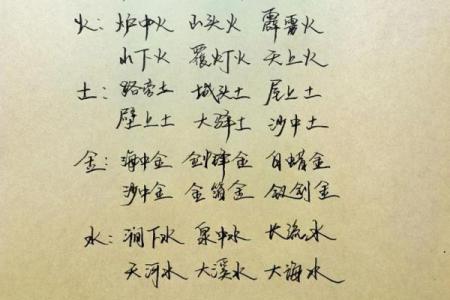 火：炉中火 山头火 霹雳火
山下火 覆灯火 天上火
土：路旁土 城头土 屋上土
壁上土 大驿土 沙中土
金：海中金 剑锋金 白蜡金
沙中金 金箔金 钗钏金
水：涧下水 泉中水 长流水
天河水 大溪水 大海水